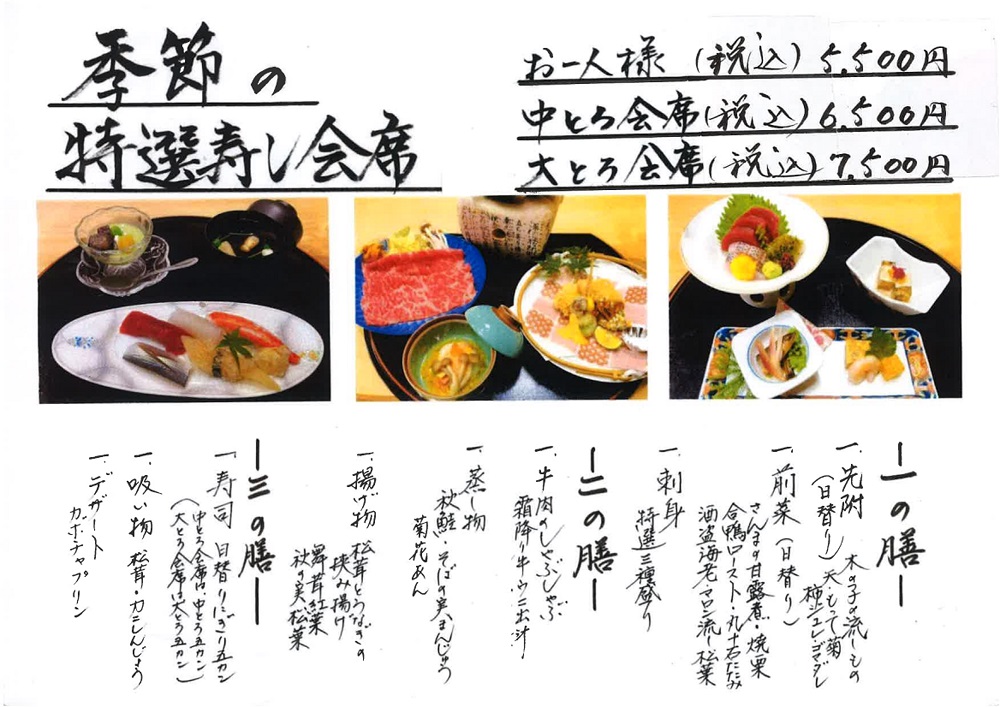 季節の
特選寿し会席
お一人様 (税込) 5,500円
中とろ会席(税込) 6,500円
大とろ会席(税込) 7,500円
ー一の膳ー
一、先附 木の子の流しもの
(日替り) 天・もって菊
柿ジュレ・ゴマダレ
一、前菜(日替り)
さんまの甘露煮・焼栗
合鴨ロースト・丸十石だたみ
酒盗海老・マロン流し松葉
一、刺身
特選三種盛り
ー二の膳ー
一、牛肉のしゃぶしゃぶ
霜降り牛・ウニ出汁
一、蒸し物
秋鮭・そばの実まんじゅう
菊花あん
一、揚げ物 松茸とうなぎの
挟み揚げ
舞茸紅葉
秋の実松葉
ー三の膳ー
一、寿司 日替りにぎり五カン
(中とろ会席は中とろ五カン)
(大とろ会席は大とろ五カン)
一、吸い物 松茸・カニしんじょう
一、デザート
カボチャプリン